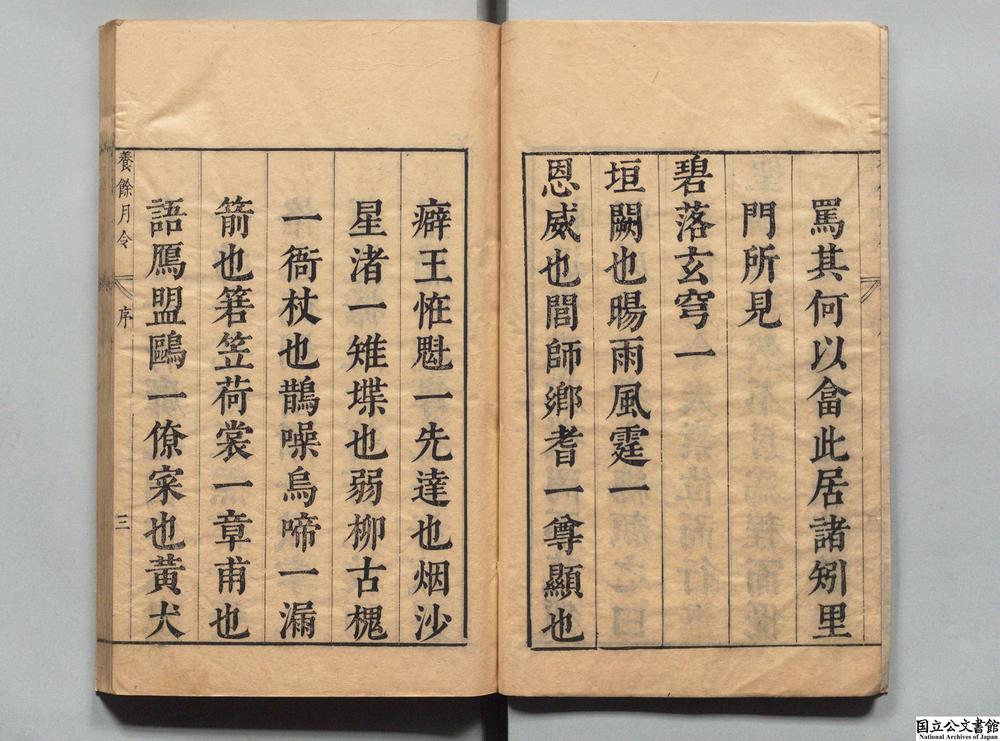 罵其何以畣此居諸矧里
門所見
碧落玄穹一
垣闕也暘雨風霆一
恩威也閭師鄉耆一尊顯也
癖王恠魁一先達也烟沙
星渚一雉堞也弱柳古槐
一衙杖也鵲噪烏啼一漏
箭也箬笠荷裳一章甫也
語鴈盟鷗一僚寀也黃犬
養餘月令
序
三
国立公文書館
National Archives of Japan